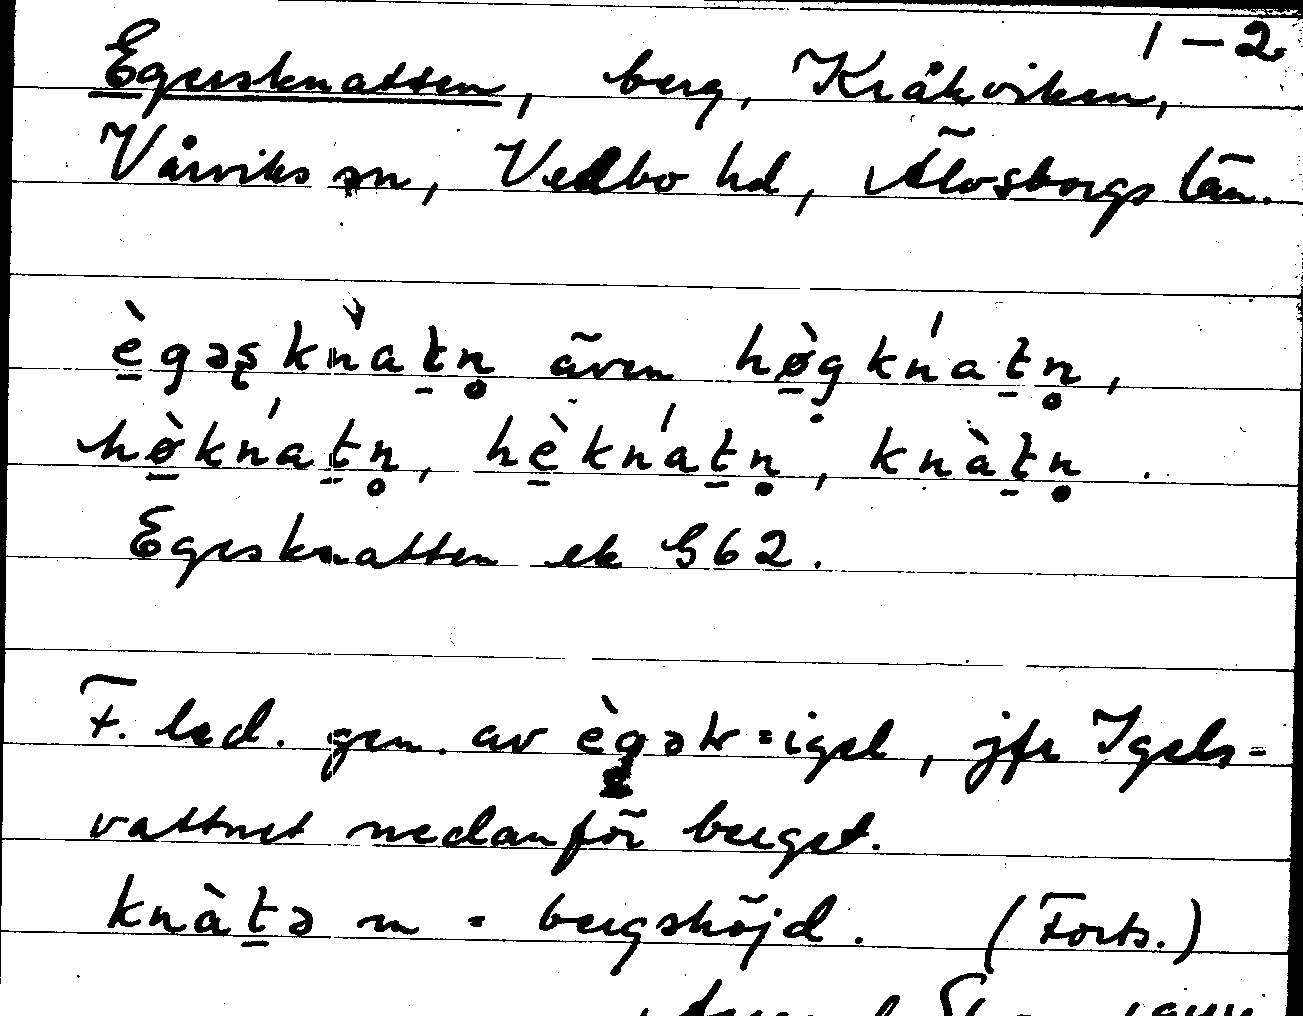 1-2
Egersknatten, berg, Kråkviken,
Vårviks sn, Vedbo hd, Älvsborgs län.
è̱gəʂkǹat̠n̥ även hø̱̀gkńat̠n̥,
hø̱̀kńat̠n̥, hè̱kńat̠n̥, knàt̠n̥.
Egesknatten ek G62.
F. led. gen. av ègəɽ = igel, jfr Igels-
vattnet nedanför berget.
knàt̠ə m = bergshöjd. (Forts.)